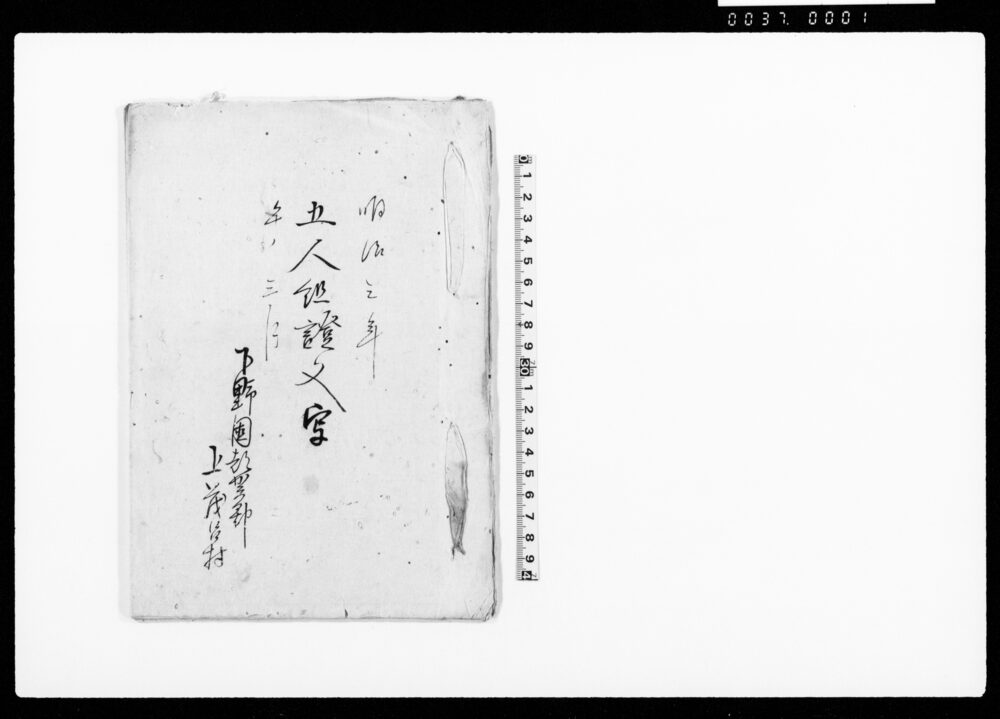 0037. 0001
明治三年
五人組證文写
午ノ三月
下野國都賀郡
上茂呂村
0 1 2 3 4 5 6 7 8 9 30 1 2 3 4 5 6 7 8 9